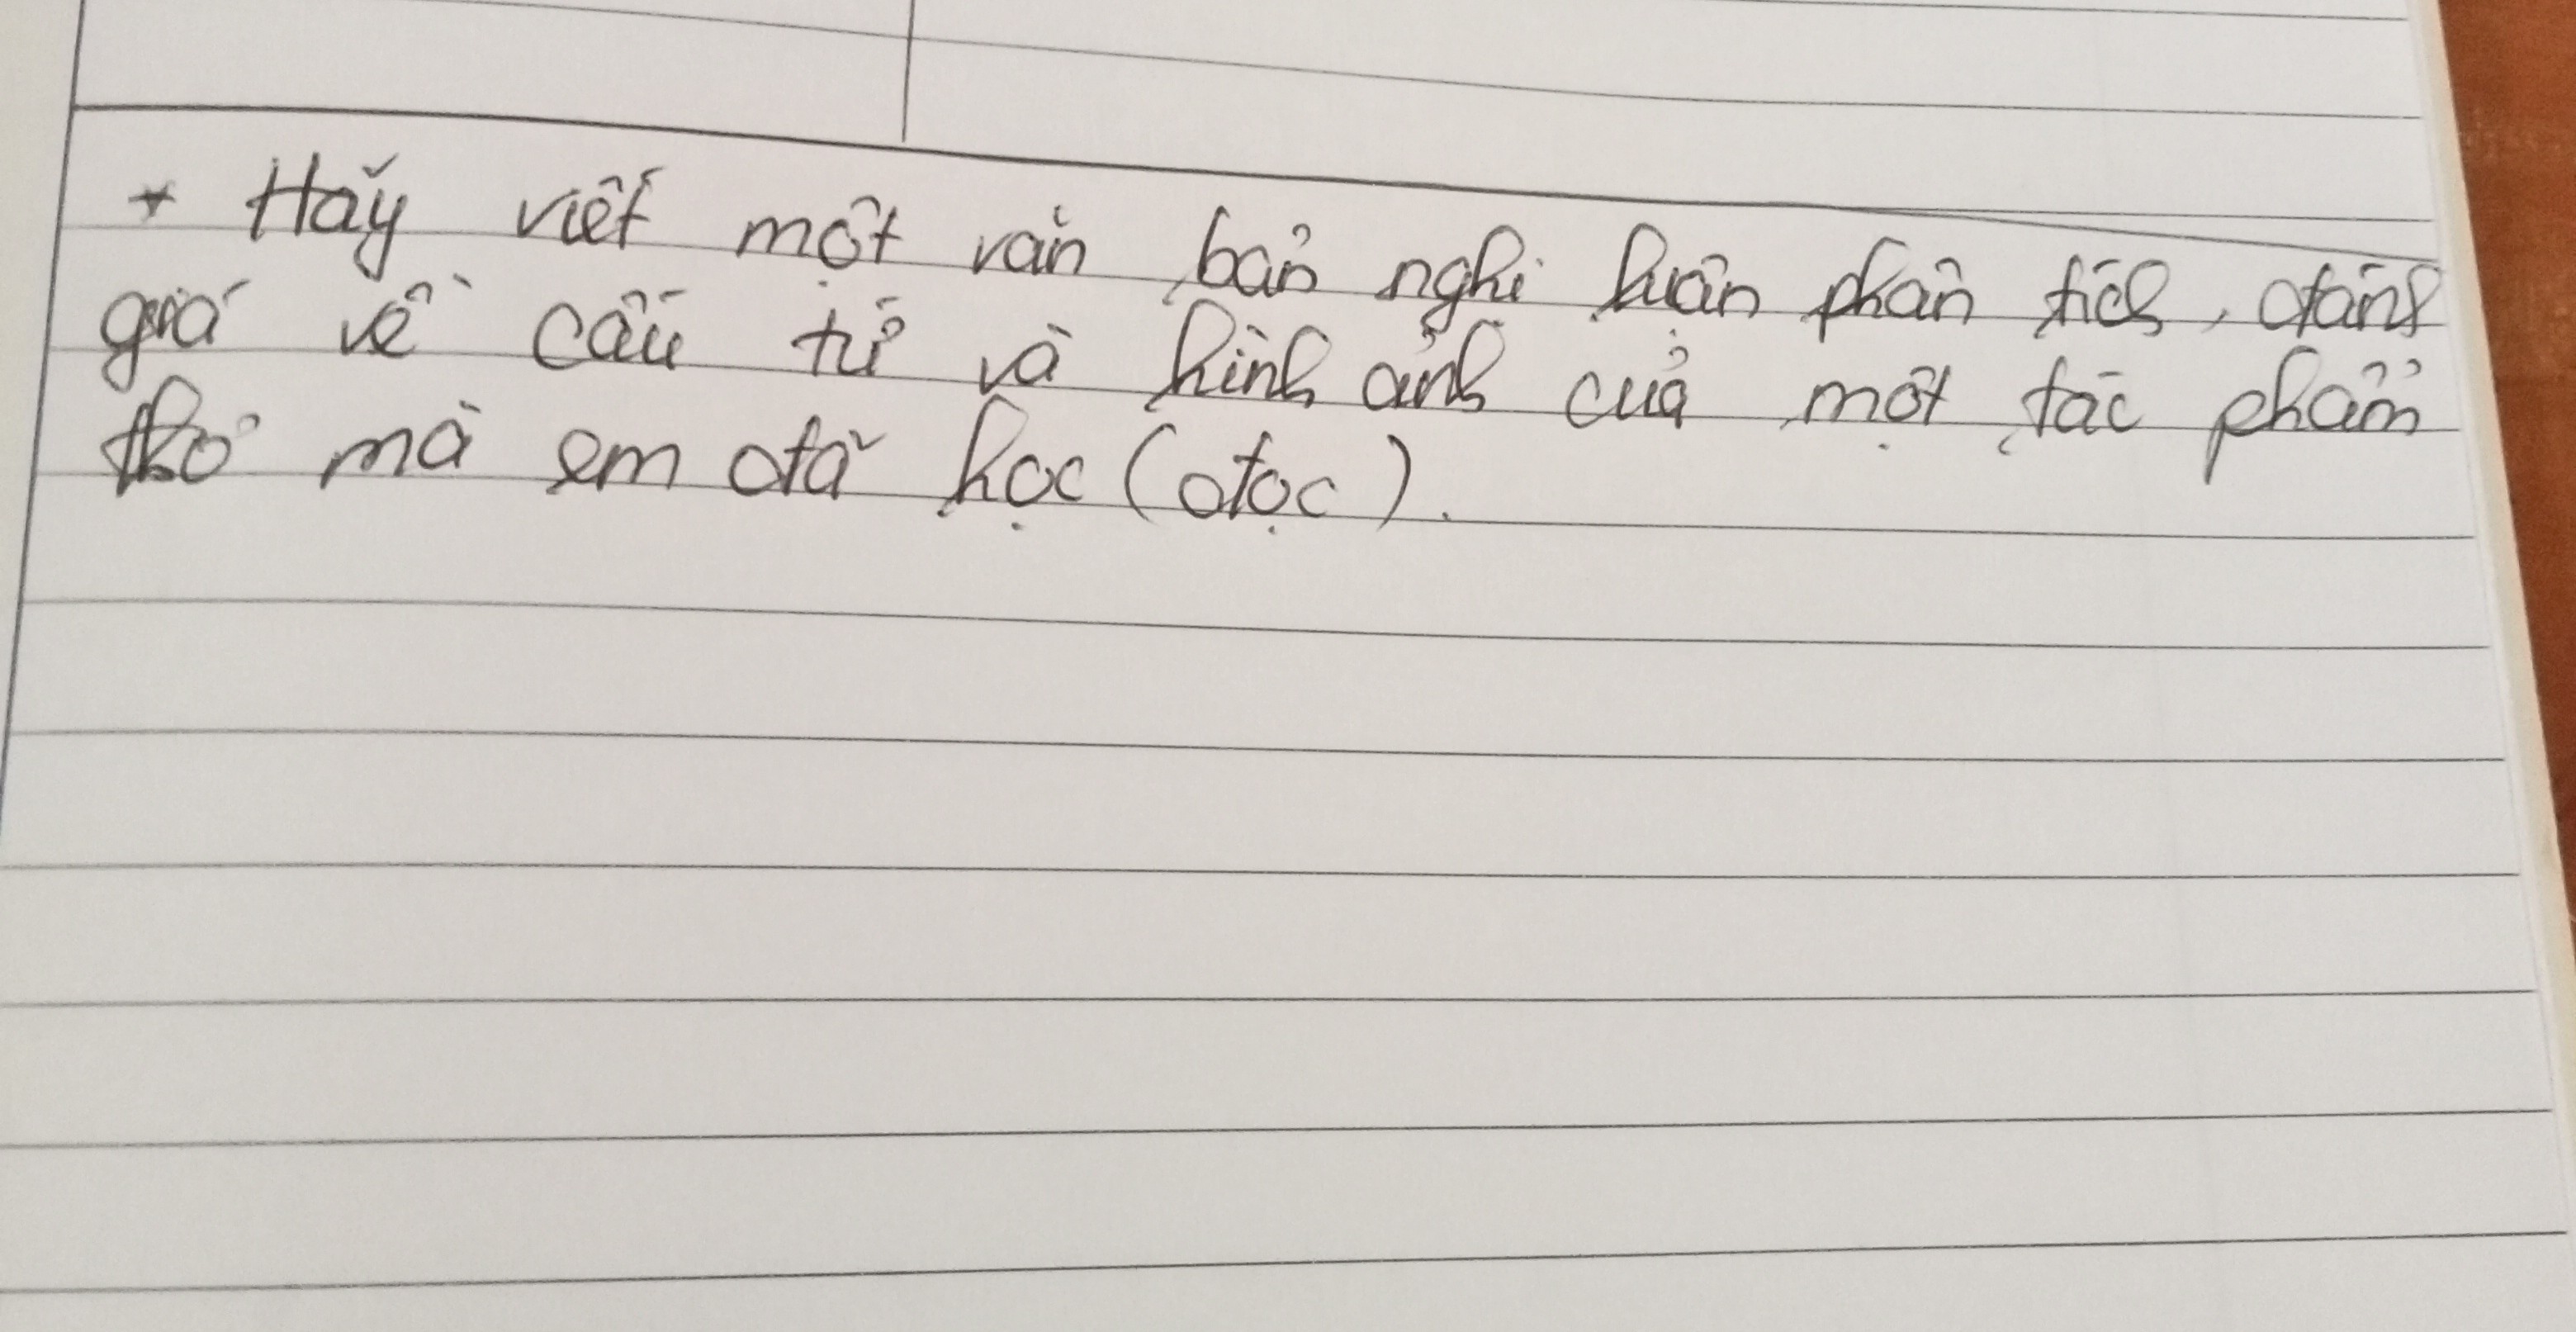 + Hãy viết một văn bản nghị luận phân tích, đánh
giá về cấu tứ và hình ảnh của một tác phẩm
thơ mà em đã học (đọc).